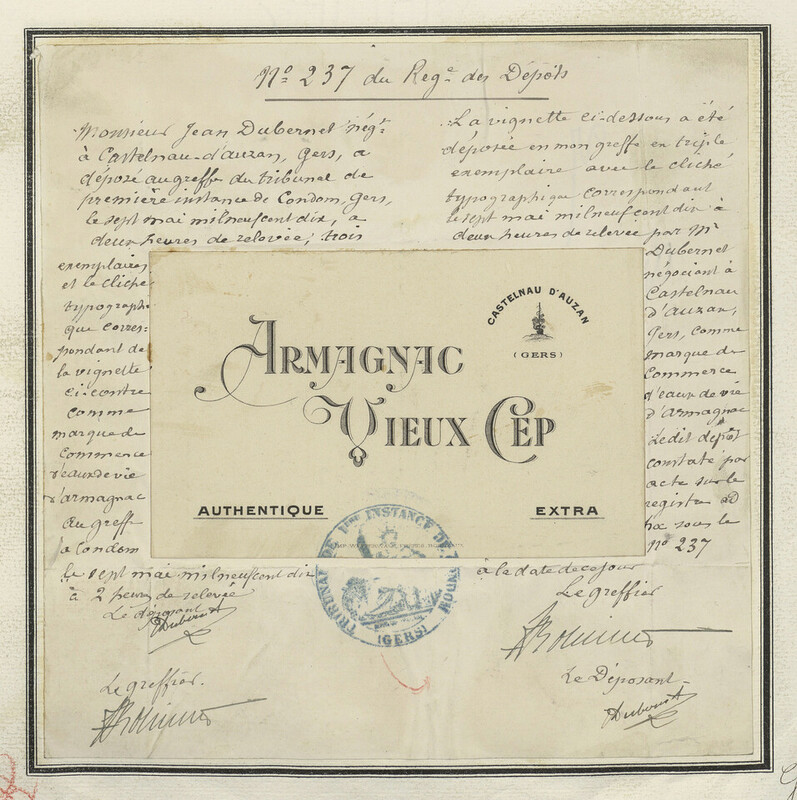 No 237 du Rege des Dépôts
Monsieur Jean Dubernet négt
à Castelnau-d'auzan, Gers, a
déposé au greffe du tribunal de
première instance de Condom, Gers,
le sept mai mil neuf cent dix, à
deux heures de relevée, trois
exemplaires
et le cliché
typographi-
que corres-
pondant de
la vignette
ci-contre
comme
marque de
commerce
d'eaux de vie
d'armagnac
au greffe
à Condom
le sept mai mil neuf cent dix
à 2 heures de relevée
Le déposant
Dubernet
Le greffier.
La vignette ci-dessous a été
déposée en mon greffe en triple
exemplaire avec le cliché
typographique correspondant
le sept mai mil neuf cent dix à
deux heures de relevée par Mr
Dubernet
négociant à
Castelnau
d'auzan,
Gers, comme
marque de
Commerce
d'eaux de vie
d'Armagnac
Ledit dépôt
constaté par
acte sur le
registre ad
hoc sous le
No 237
à la date de ce jour
Le greffier
Le Déposant
Dubernet
CASTELNAU D'AUZAN
(GERS)
ARMAGNAC
VIEUX CEP
AUTHENTIQUE
EXTRA
TRIBUNAL DE 1ère INSTANCE DE
(GERS)